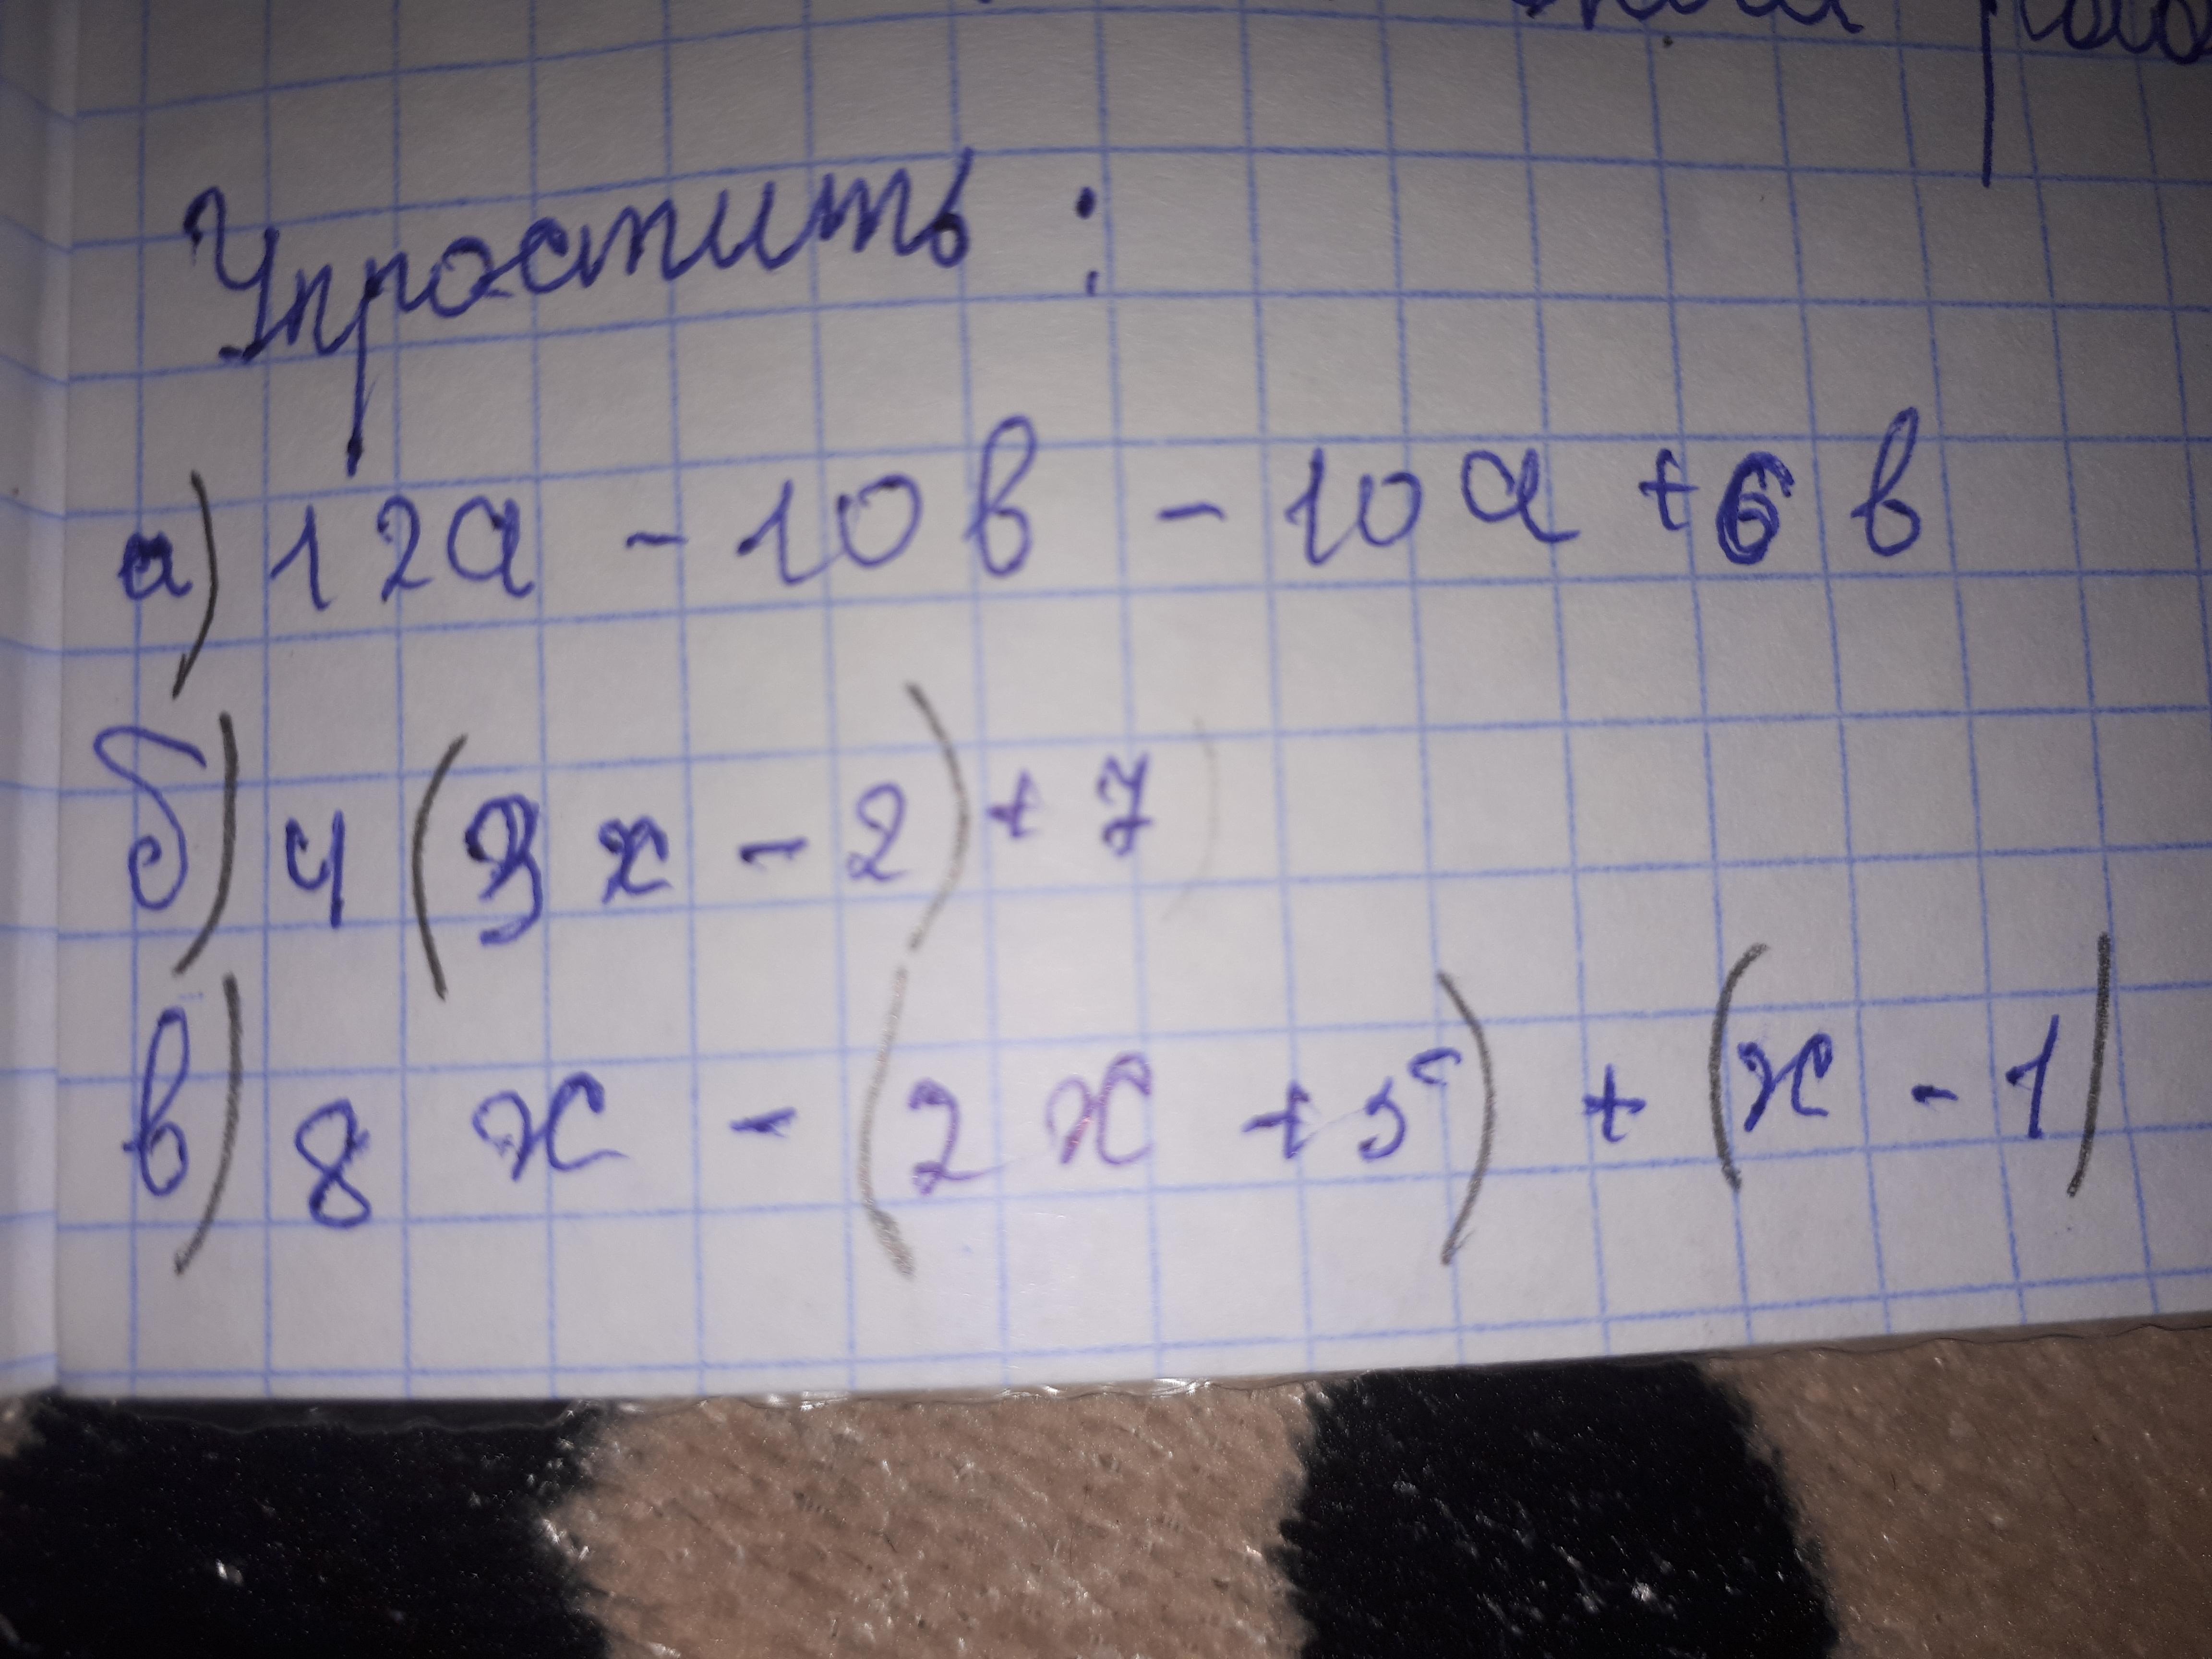 Упростить:
а) 12а - 10в - 10а + 6в
б) 4(3х - 2) + 7
в) 8х - (2х + 5) + (х - 1)